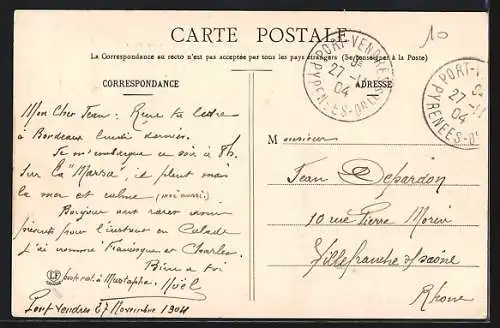 CARTE POSTALE
10
La Correspondance au recto n'est pas acceptée par tous les pays étrangers (Se renseigner à la Poste)
CORRESPONDANCE
ADRESSE
PORT-VENDRES
27 -11
04
PYRÉNÉES-ORLES
PORT-V
27 -11
04
PYRENEES-O
Mon Cher Jean : Reçu ta lettre
à Bordeaux lundi dernier.
Je m'embarque ce soir à 8h.
sur la "Marsa", il pleut mais
la mer est calme (moi aussi)
Bonjour
pour l'instant en Calade
j'ai nommé Francisque et Charles.
Bien à toi
LF
à Mustapha. Noël
Port Vendres 27 Novembre 1904
Monsieur
Jean Depardon
10 rue Pierre Morin
Villefranche s/ Saône
Rhône